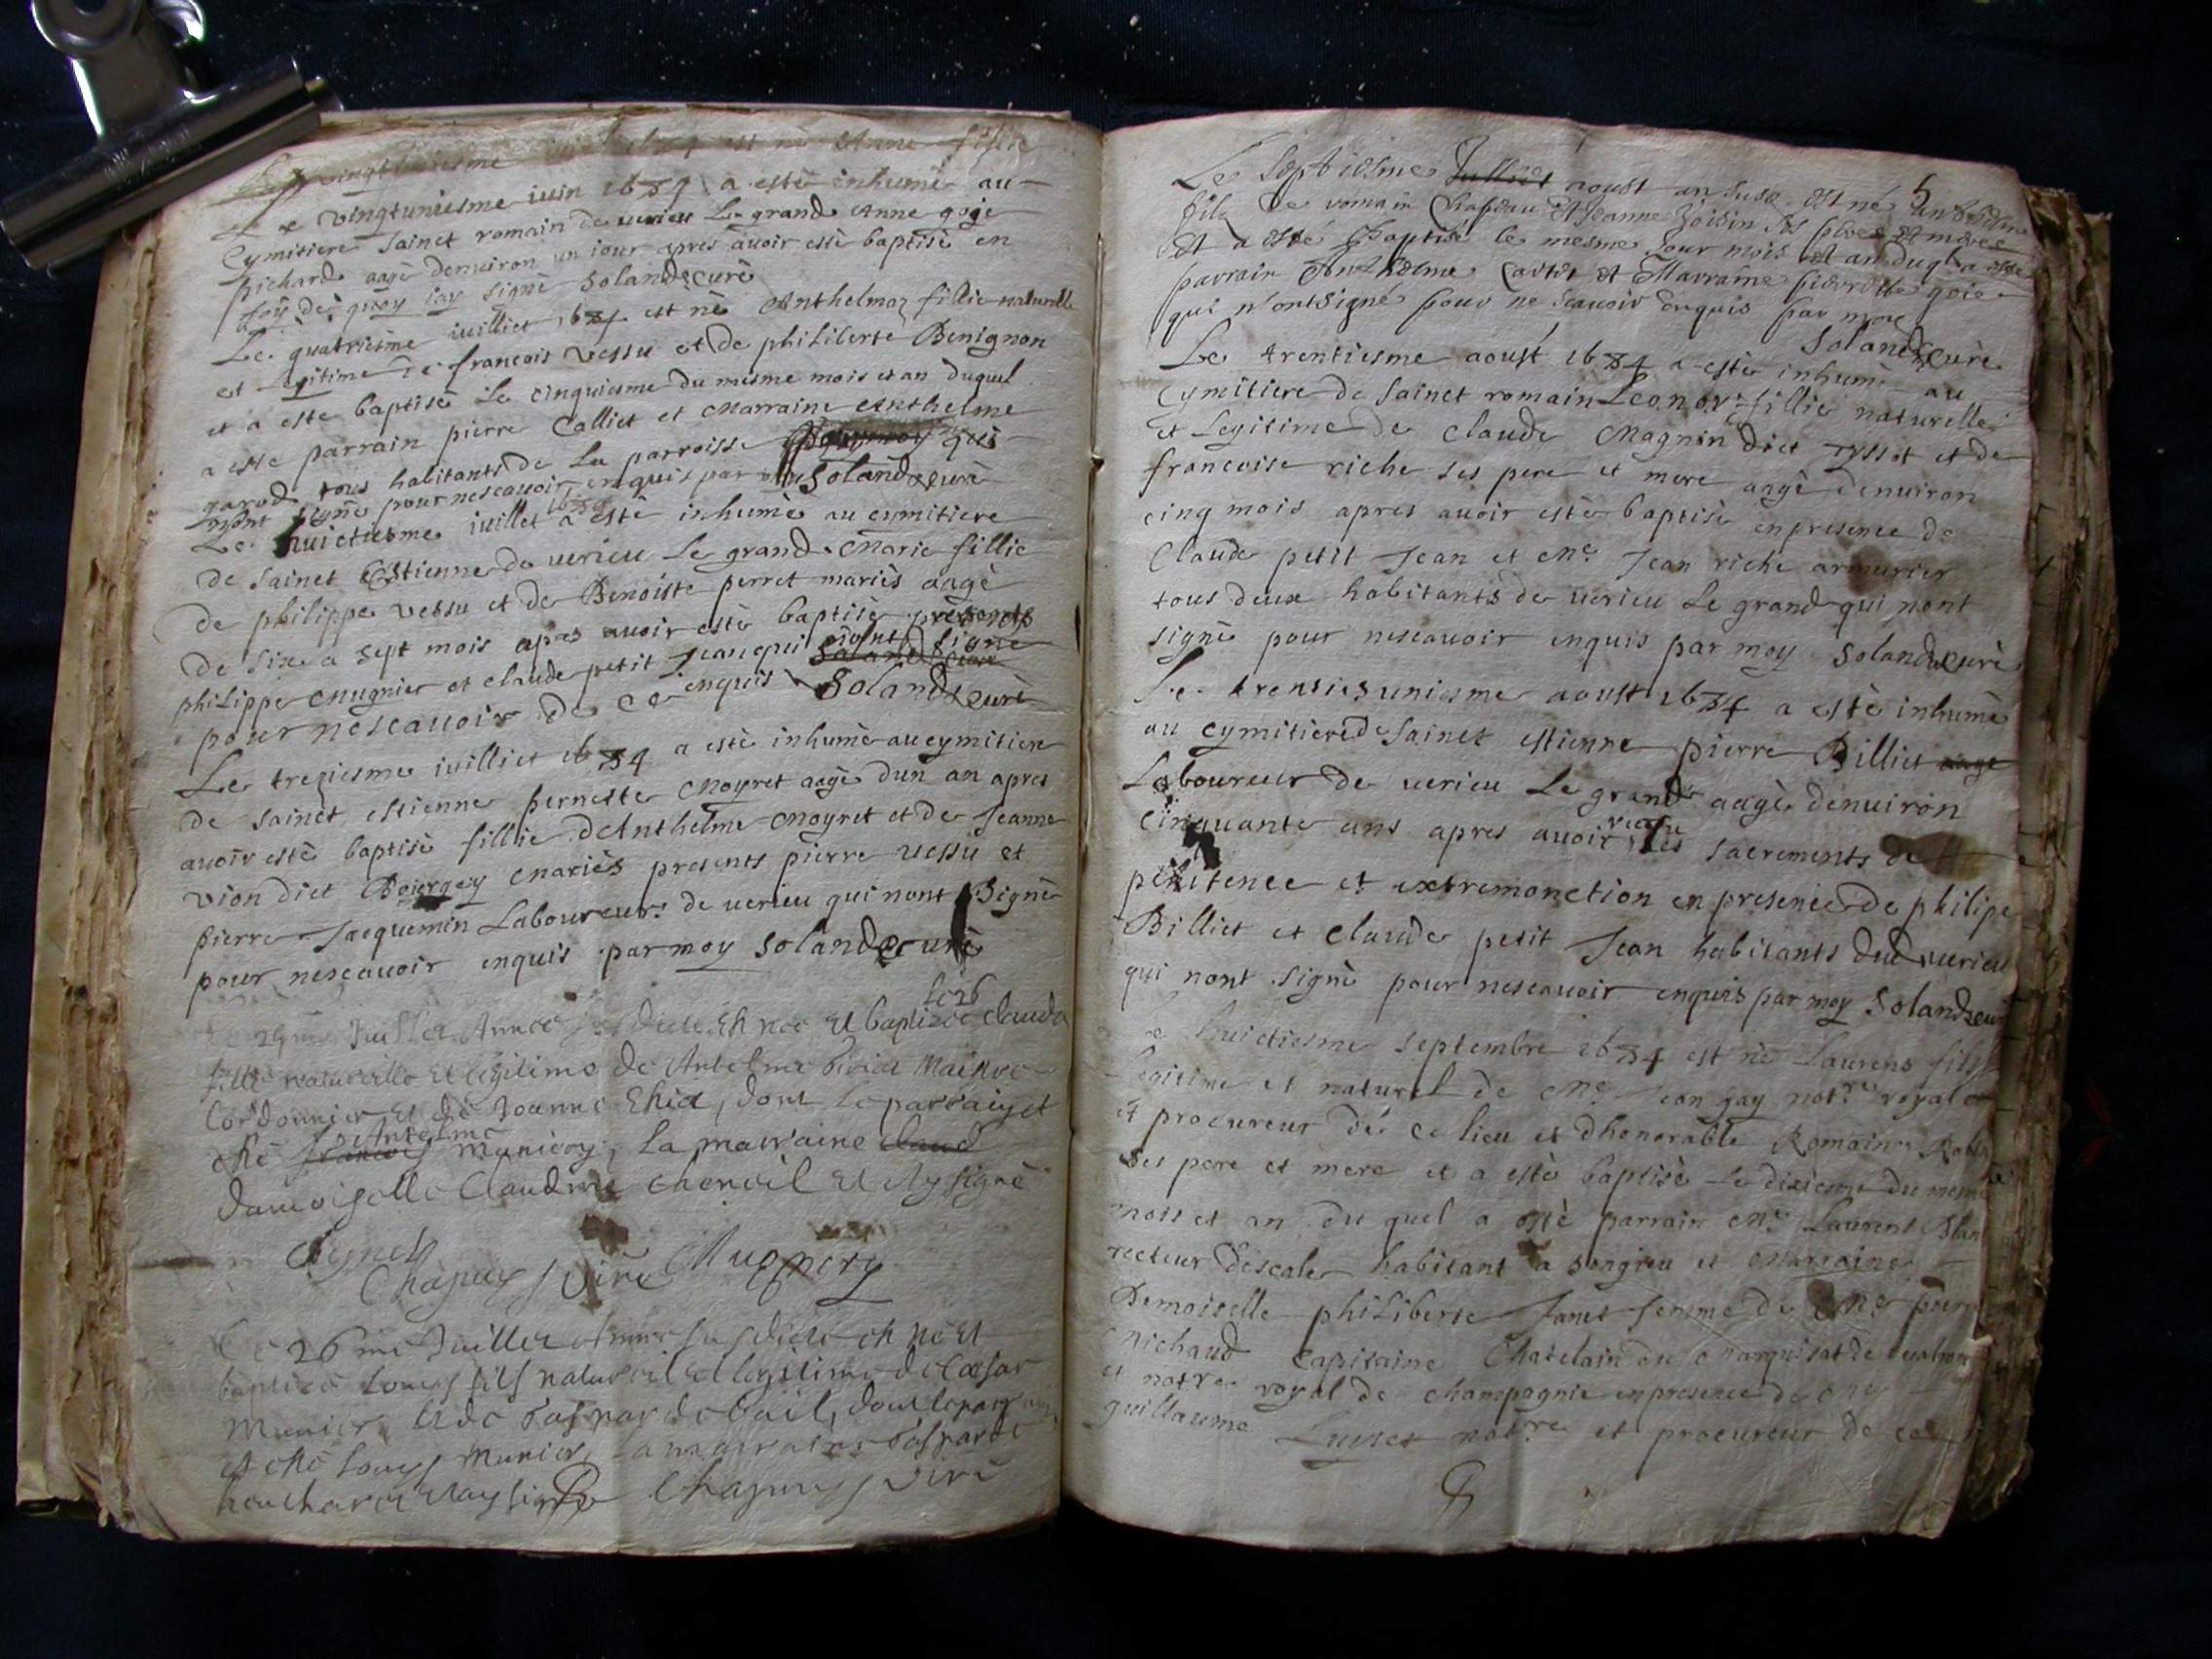 est né Anne fillie
Le vingtuniesme iuin 1684 a estè inhumè au
Cymitiere Sainct romain de uerieu Le grand Anne goje
pichard aagè denuiron un iour apres auoir estè baptisè en
foÿ de quoy iay signè Solandz curè
Le quatriesme iuilliet 1684 est nè Anthelmaz fillie naturelle
et Legitime de francois vessu et de philiberte Benignon
et a este baptisè Le cinquiesme du mesme mois et an duquel
a este parrain pierre Calliet et Marraine Anthelme
garod tous habitants de La parroisse qui
nont signè pour nescauoir enquis par moy Solandz curè
Le huictiesme iuillet 1684 a estè inhumè au cymitiere
de sainct Estienne de uerieu Le grand Marie fillie
de philippe vessu et de Benoiste perret mariès aagè
de six a sept mois apres auoir estè baptisè presents
philippe Mugnier et claude petit Jean qui n'ont signè
pour nescauoir de ce enquis Solandz curè
Le treziesme iuilliet 1684 a estè inhumè au cymitiere
de sainct estienne pernette Moyret aagè dun an apres
auoir estè baptisè fillie dAnthelme Moyret et de Jeanne
vion dict Boiergey Mariès presents pierre uessu et
pierre Jacquemin Laboureurs de uerieu qui nont signè
pour nescauoir enquis par moy Solandz curè
le 26
29me Juillet Année susdicte Est née et baptizée clauda
fille naturelle et légitime de Antelme Maitre
Cordonnier et de Joanne Ehia, dont le parrain et
esté francois Antelme Muniery, la marraine claud
damoiselle Claudine Cheneil et ay signé
Signeh
Chapuy viré Mugniery
Ce 26me Juillet Année susdicte est né et
baptizé Louys fils naturel et legitime de Cæsar
Munier, et de Gasparde Gail, dont le parrain
et esté Louys Munier, la marraine Gasparde
boucharder et ay signé Chapuys viré
5
Le septiesme Julliet aoust an susd. est né Anthelme
filz de romain Chapeau et Jeanne Joisin ses père et mère
et a esté Baptisé le mesme jour mois et an duql a esté
parrain Anthelme Cartet et Marraine pierrette goie
qui n'ont signé pour ne scauoir enquis par moy
Solandz curè
Le trentiesme aoust 1684 a estè inhumè au
Cymitiere de Sainct romain Leonore fillie naturelle
et Legitime de claude Magnin dict Tyssot et de
francoise riche ses pere et mere aagè denuiron
cinq mois apres auoir estè baptisè en presence de
Claude petit Jean et Me Jean riche armurier
tous deux habitants de uerieu Le grand qui nont
signè pour nescauoir enquis par moy Solandz curè
Le trentiesuniesme aoust 1684 a estè inhumè
au cymitiere de Sainct estienne pierre Billiet aage
Laboureur de uerieu Le grand aagè denuiron
Cinquante ans apres auoir receu Les sacrements de
penitence et extremonction en presence de philipe
Billiet et claude petit Jean habitants dud uerieu
qui nont signè pour nescauoir enquis par moy Solandz curè
Le huictiesme septembre 1684 est nè Laurens fils
Legitime et naturel de Me Jean gay notre royal et
et procureur de ce lieu et dhonorable Romaine
ses pere et mere et a estè baptisè Le dixiesme du mesme
mois et an du quel a estè parrain Me Laurent
recteur descale habitant a songieu et Marraine
Demoiselle philiberte Janet femme de Me pierre
Michaud Capitaine Chatelain du Marquisat de
et notre royal de champagnie en presence de Me
guillaume Luyset notre et procureur de ce